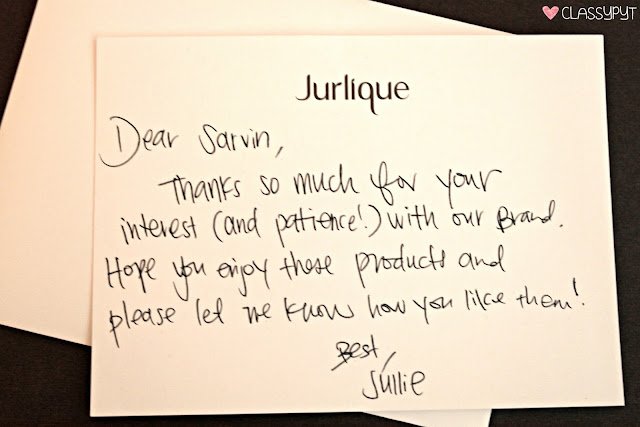 ♥ CLASSYPYT
Jurlique
Dear Sarvin,
Thanks so much for your
interest (and patience!) with our Brand.
Hope you enjoy these products and
please let me know how you like them!
Best,
Jullie